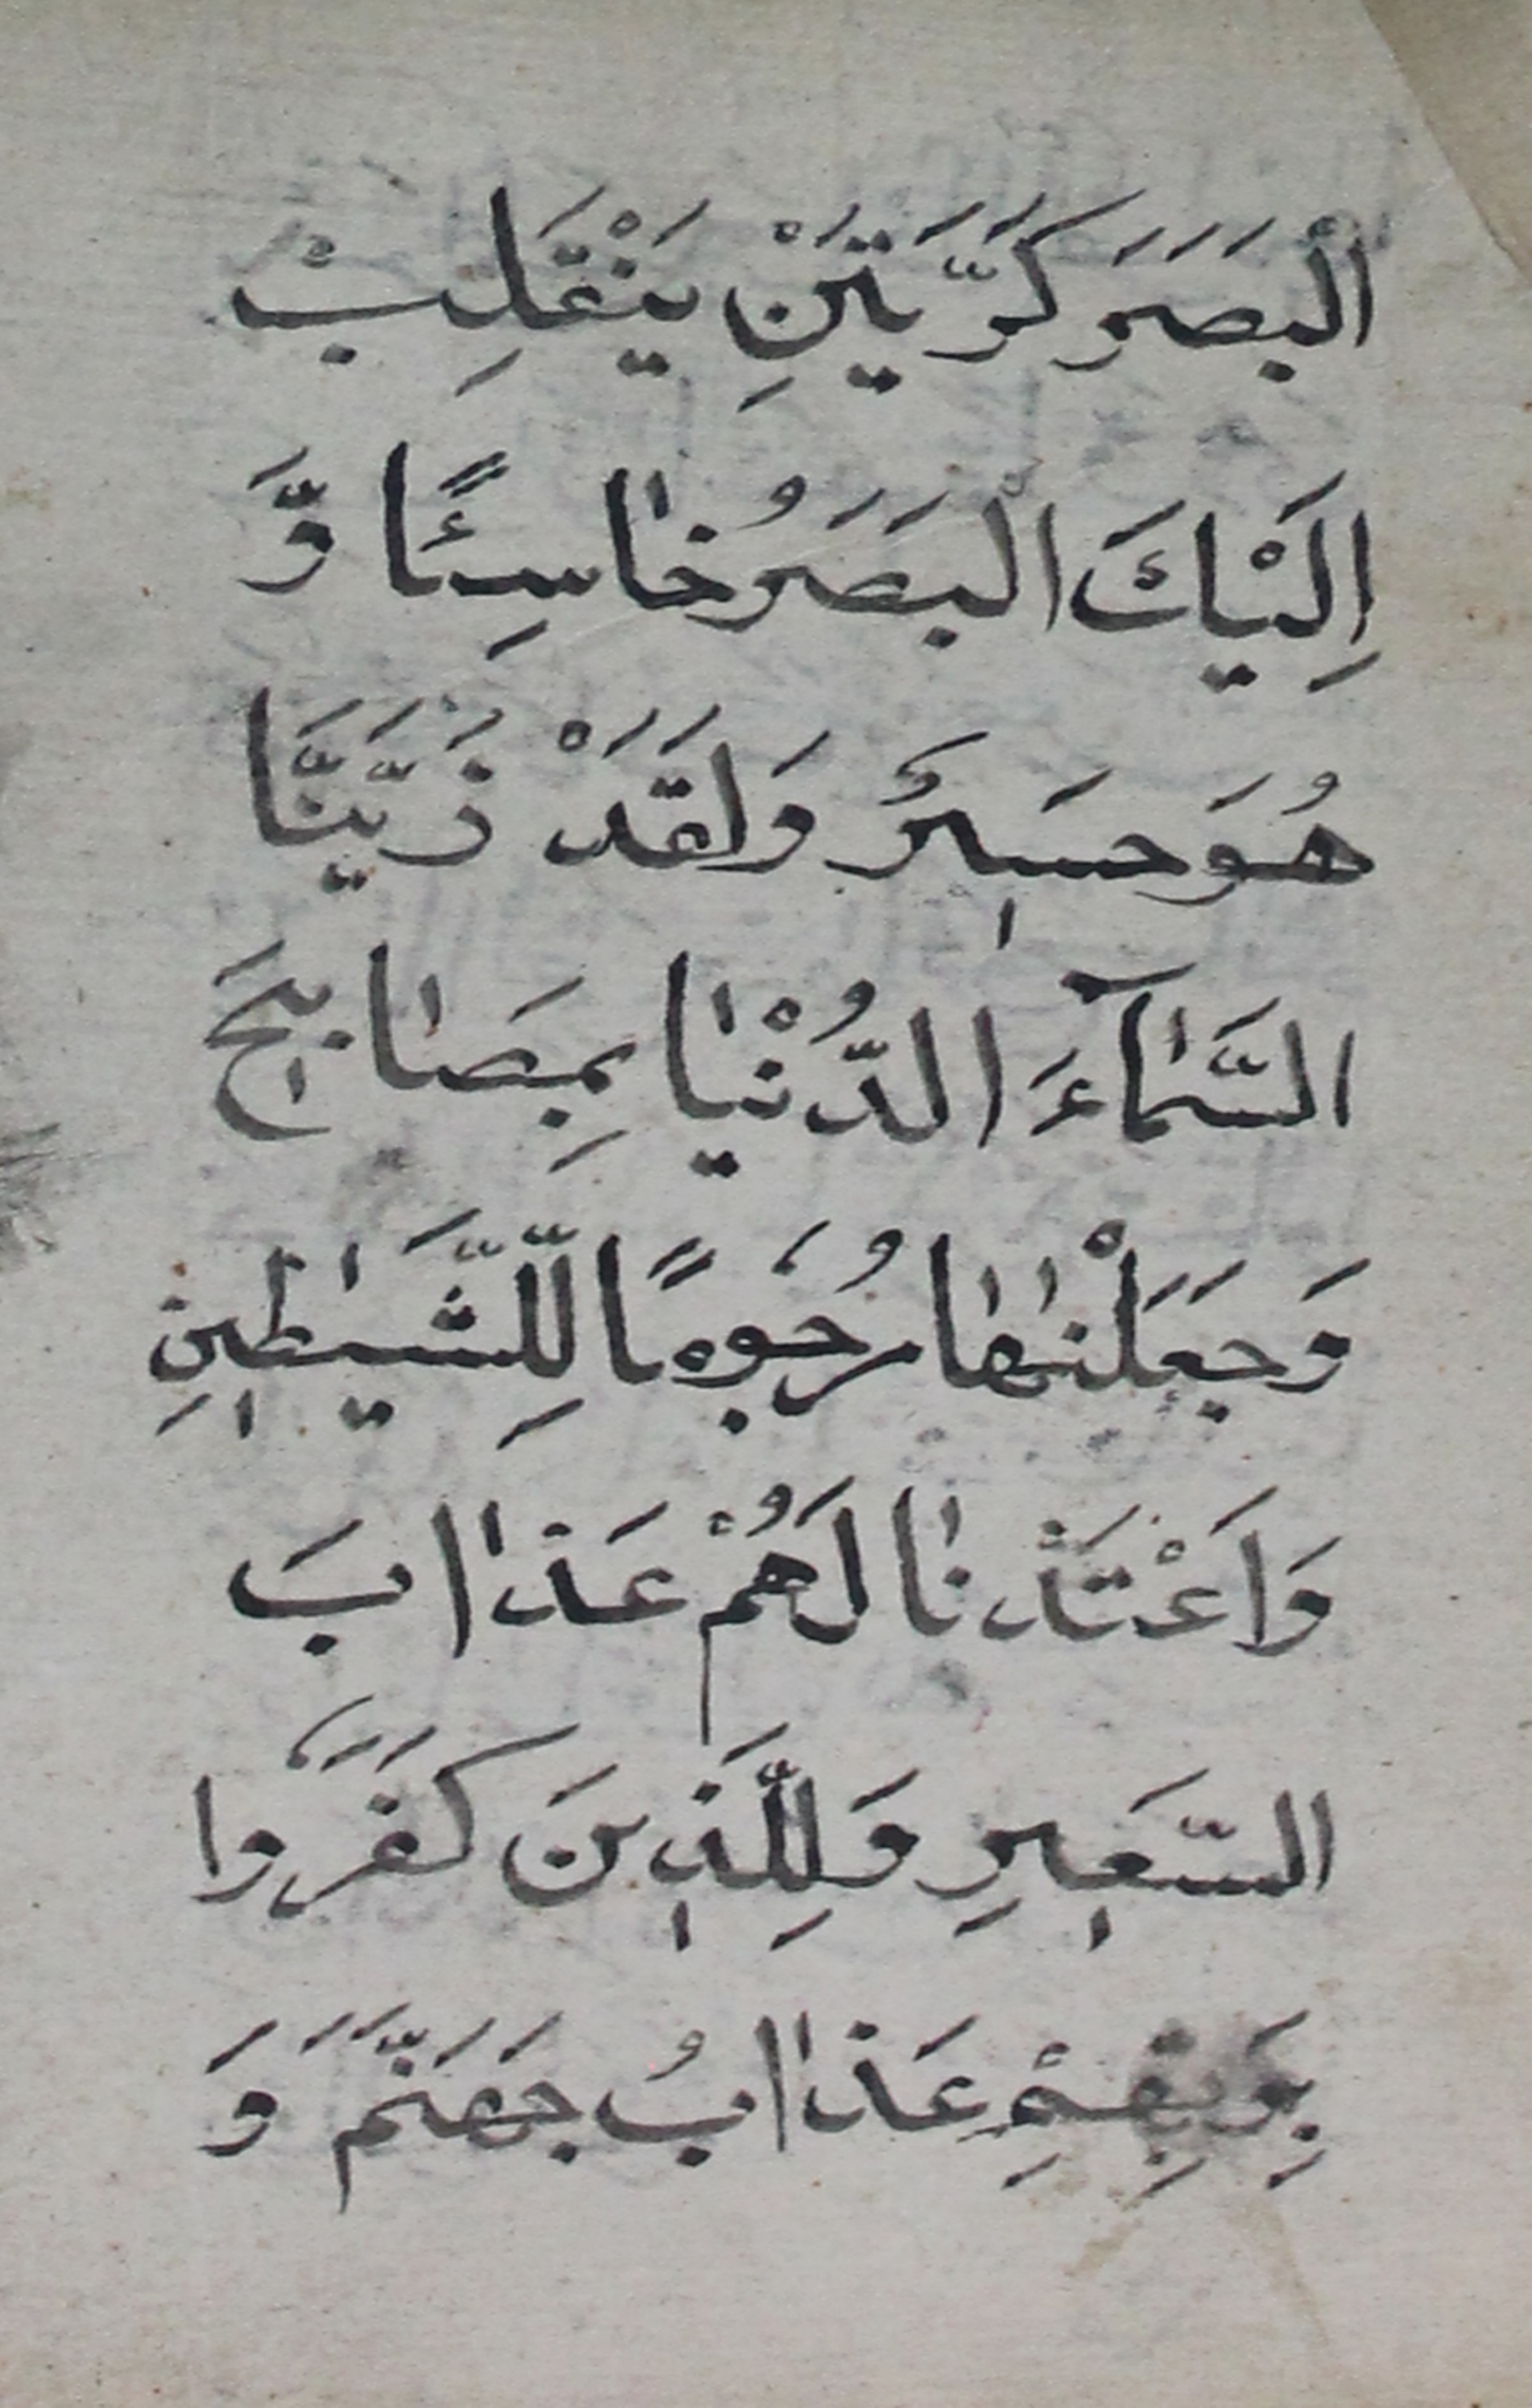 الْبَصَرَ كَرَّتَيْنِ يَنْقَلِبْ
اِلَيْكَ الْبَصَرُ خٰاسِئًا وَّ
هُوَ حَسٖيرٌ وَلَقَدْ زَيَّنَّا
السَّمٰآءَ الدُّنْيٰا بِمَصٰابٖيحَ
وَجَعَلْنٰهٰا رُجُومًا لِلشَّيٰطٖينِ
وَاَعْتَدْنٰا لَهُمْ عَذٰابَ
السَّعٖيرِ وَلِلَّذٖينَ كَفَرُوا
بِرَبِّهِمْ عَذٰابُ جَهَنَّمَ وَ